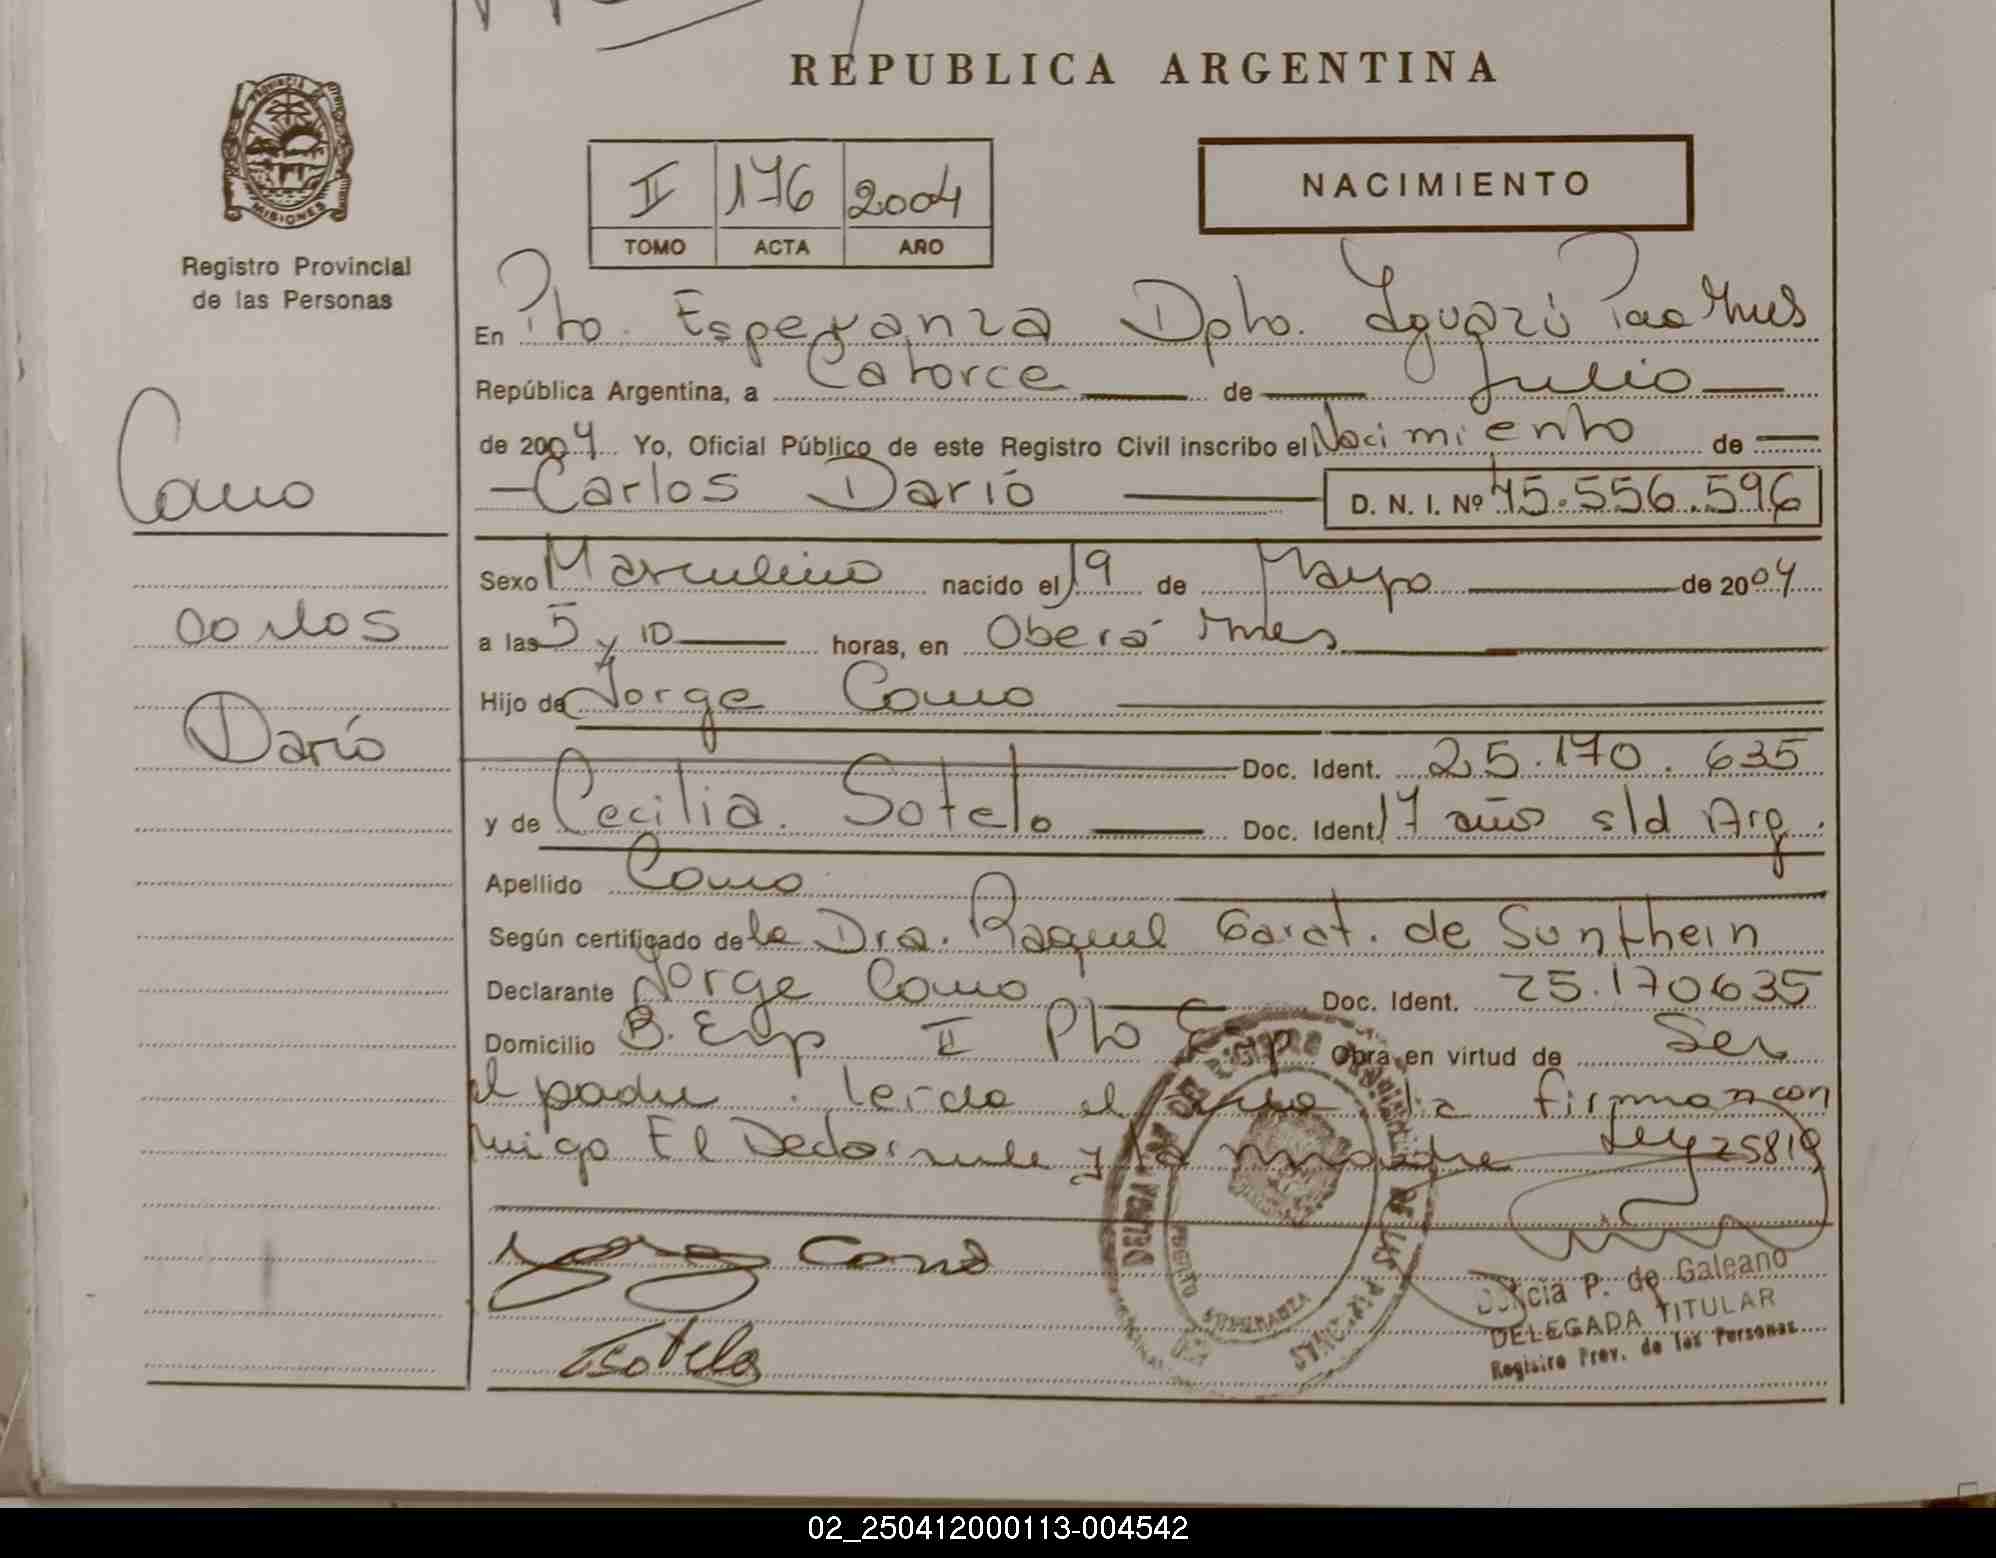 REPUBLICA ARGENTINA
PROVINCIA
MISIONES
Registro Provincial
de las Personas
II 176 2004
TOMO ACTA AÑO
NACIMIENTO
En Pto. Esperanza Dpto. Iguazú
República Argentina, a Catorce de Julio
de 2004 Yo, Oficial Público de este Registro Civil inscribo el Nacimiento de
Carlos Darío D. N. I. Nº 45.556.596
Cano
Carlos
Darío
Sexo Masculino nacido el 19 de Mayo de 2004
a las 5 y 10 horas, en Oberá Mnes
Hijo de Jorge Cano
Doc. Ident. 25.170.635
y de Cecilia Sotelo Doc. Ident. 17 años s/d Arg.
Apellido Cano
Según certificado de la Dra. Raquel Garat. de Sunthein
Declarante Jorge Cano Doc. Ident. 25.170635
Domicilio B. Esp II Pto Esp Obra en virtud de Ser
el padre. Leida el acta la firman con
migo El Declarante y la madre Ley 25819
Jorge Cano
Sotelo
PUERTO ESPERANZA
P. de Galeano
DELEGADA TITULAR
Registro Prov. de las Personas
02_250412000113-004542